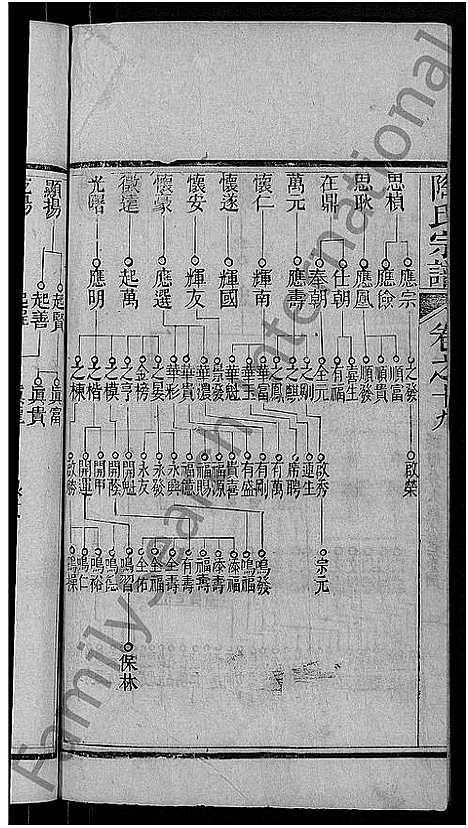 氏宗譜
卷之十九
思楨
思耿
在鼎
萬元
懷仁
懷遂
懷安
懷豪
徵達
光曙
應宗
應儉
應鳳
仕朝
奉朝
應壽
輝南
輝國
輝友
應選
起萬
應明
之發
順富
順貴
順發
喜生
有福
全元
之剛
之麒
之鳳
華富
華玉
華魁
崇發
華濃
華貴
華彩
之晏
金榜
之亨
之模
之楷
之棟
啟榮
啟秀
連生
席聘
有萬
有剛
有盛
貴喜
福源
福賜
福德
永興
永發
永友
開魁
開發
開甲
開運
啟勝
宗元
鳴發
鳴福
添福
添壽
福壽
有壽
全壽
全福
全佑
鳴習
鳴裕
鳴仁
保林
顯揚
起賢
起善
眞富
眞貴
Family Search International